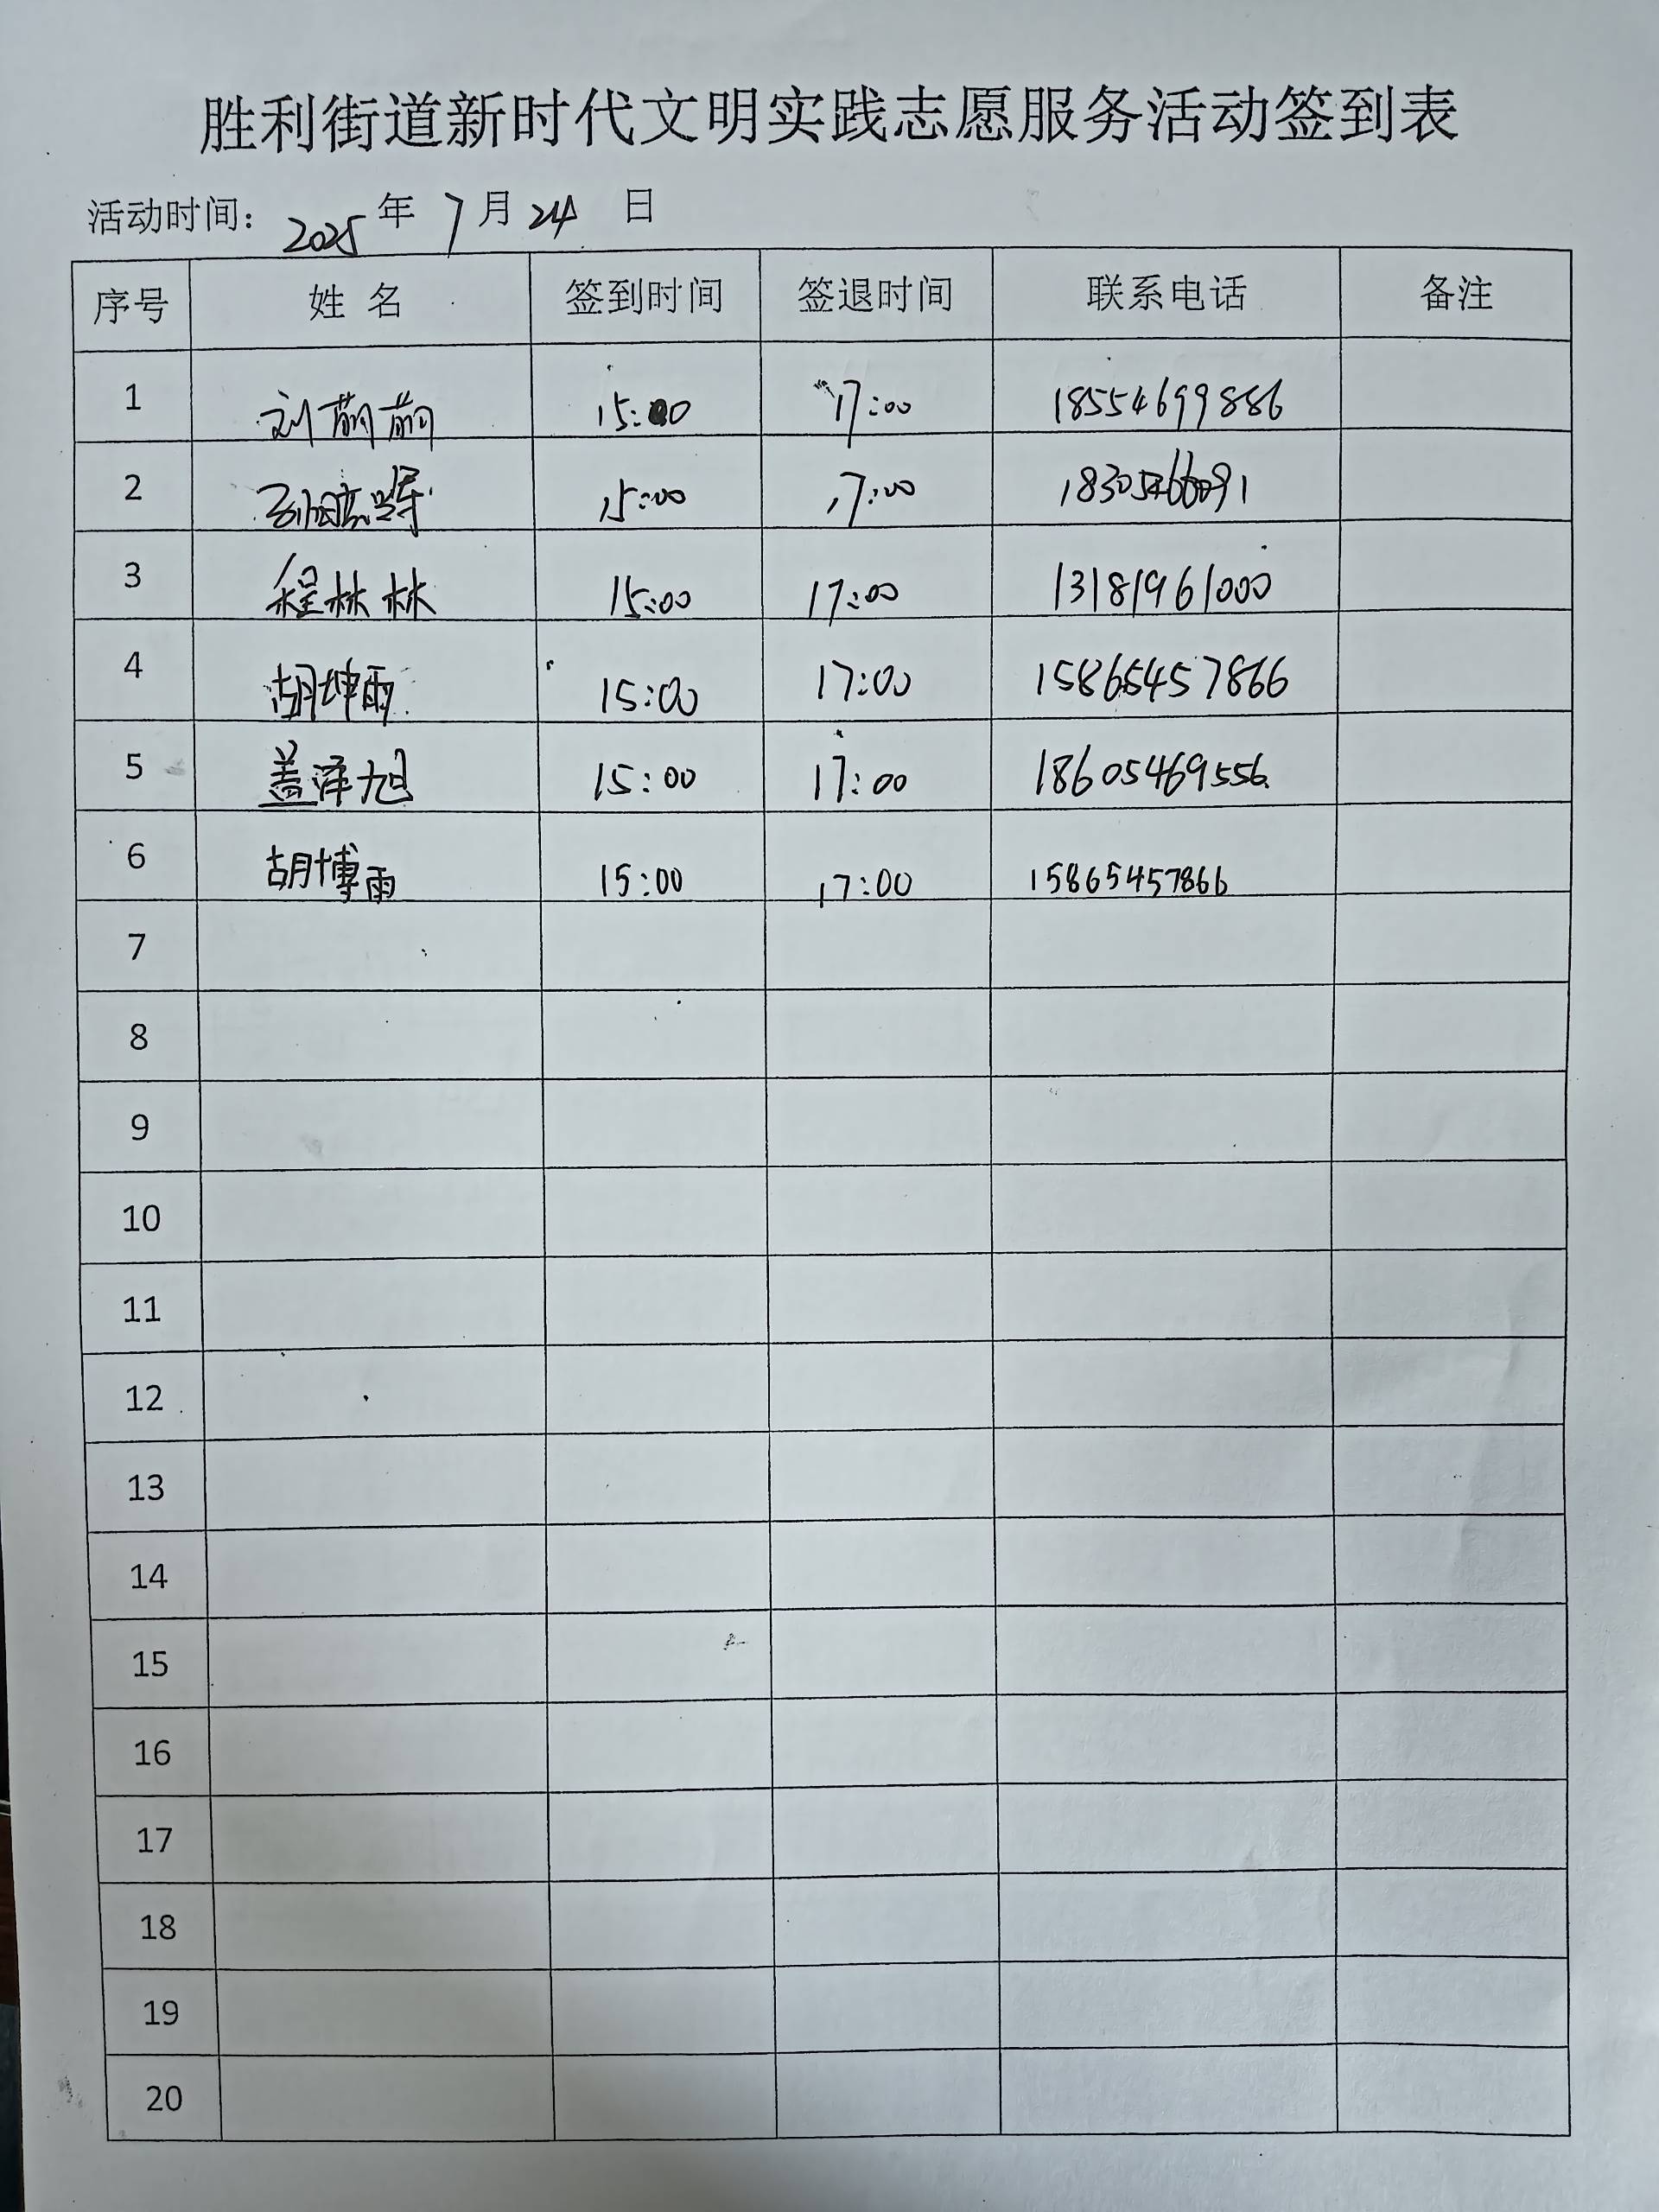 胜利街道新时代文明实践志愿服务活动签到表
活动时间：2025年7月24日
序号 姓名 签到时间 签退时间 联系电话 备注
1 刘萌萌 15:00 17:00 18554699886
2 15:00 17:00
3 程林林 15:00 17:00 13181961000
4 胡坤雨 15:00 17:00 15865457866
5 盖泽旭 15:00 17:00 18605469556
6 胡博雨 15:00 17:00 15865457866
7
8
9
10
11
12
13
14
15
16
17
18
19
20